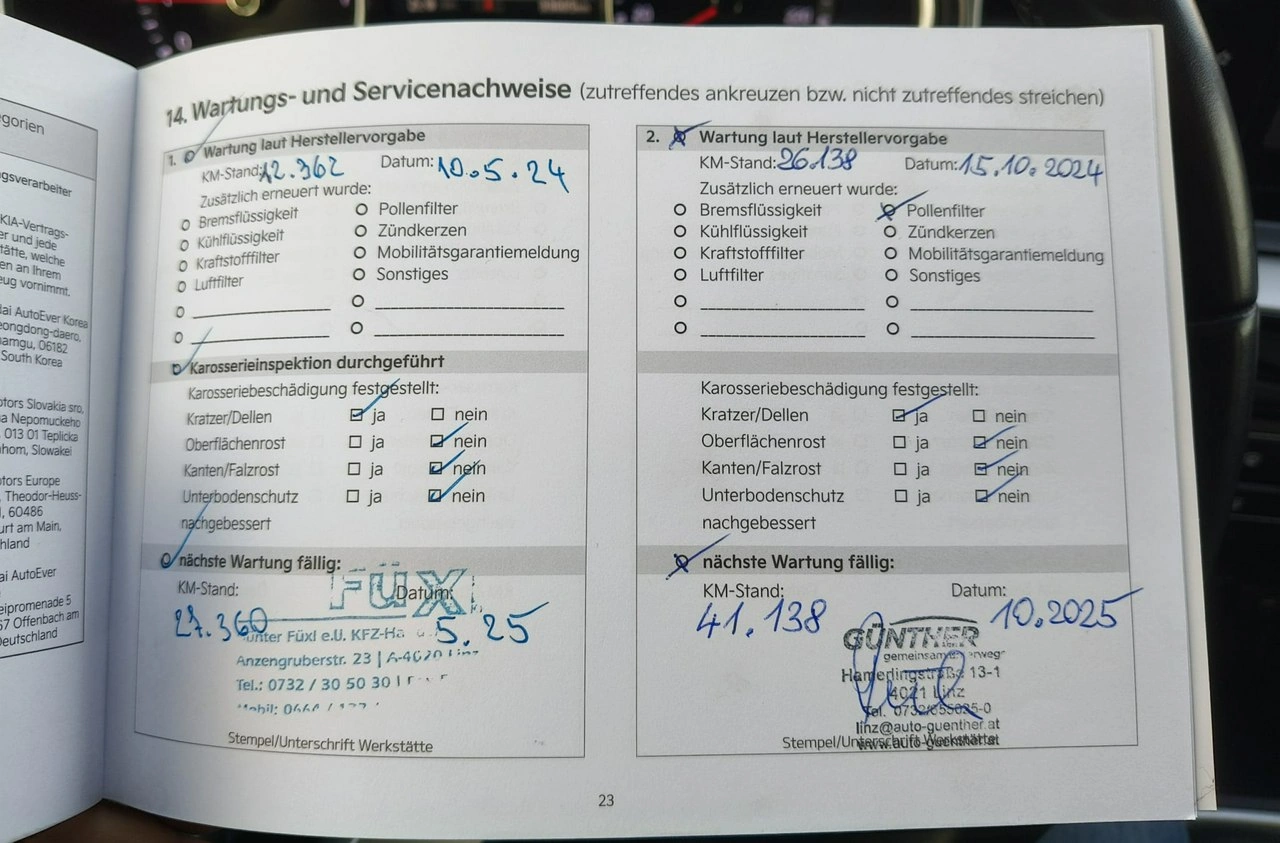 gorien
gsverarbeiter
KIA-Vertrags-
er und jede
tätte, welche
en an Ihrem
eug vornimmt.
dai AutoEver Korea
eongdong-daero,
amgu, 06182
South Korea
otors Slovakia sro,
a Nepomuckeho
, 013 01 Teplicka
hom, Slowakei
otors Europe
, Theodor-Heuss-
l, 60486
urt am Main,
hland
ai AutoEver
eipromenade 5
67 Offenbach am
Deutschland
14. Wartungs- und Servicenachweise (zutreffendes ankreuzen bzw. nicht zutreffendes streichen)
1. Wartung laut Herstellervorgabe
KM-Stand: 12.362 Datum: 10.5.24
Zusätzlich erneuert wurde:
Bremsflüssigkeit Pollenfilter
Kühlflüssigkeit Zündkerzen
Kraftstofffilter Mobilitätsgarantiemeldung
Luftfilter Sonstiges
Karosserieinspektion durchgeführt
Karosseriebeschädigung festgestellt:
Kratzer/Dellen ja nein
Oberflächenrost ja nein
Kanten/Falzrost ja nein
Unterbodenschutz ja nein
nachgebessert
nächste Wartung fällig:
KM-Stand: Datum:
FÜXL
27.360 5.25
unter Füxl e.U. KFZ-Ha
Anzengruberstr. 23 | A-4020
Tel.: 0732 / 30 50 30 |
Stempel/Unterschrift Werkstätte
2. Wartung laut Herstellervorgabe
KM-Stand: 26.138 Datum: 15.10.2024
Zusätzlich erneuert wurde:
Bremsflüssigkeit Pollenfilter
Kühlflüssigkeit Zündkerzen
Kraftstofffilter Mobilitätsgarantiemeldung
Luftfilter Sonstiges
Karosseriebeschädigung festgestellt:
Kratzer/Dellen ja nein
Oberflächenrost ja nein
Kanten/Falzrost ja nein
Unterbodenschutz ja nein
nachgebessert
nächste Wartung fällig:
KM-Stand: Datum:
41.138 10.2025
GÜNTHER
Hamerlingstraße 13-1
4021 Linz
linz@auto-guenther.at
www.auto-guenther.at
Stempel/Unterschrift Werkstätte
23